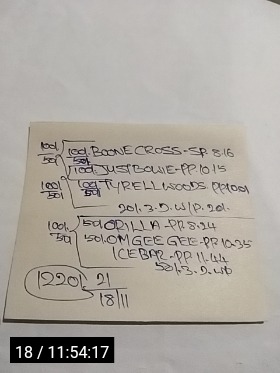 100/. 100/. BOONECROSS-SP. 8.16
50/. 50/.
100/. JUSTBOWIE-PP. 10.15
100/. 100/. TYRELLWOODS. PP.
50/. 50/.
20/. 3.D. W/P. 20/.
100/. 50/. ORILLA-PP. 8.24
50/. 50/. OMGEEGEE-PP. 10.35
ICEBAR-PP. 11.44
50/. 3.D.
1220/. 21
18/11
18 / 11:54:17